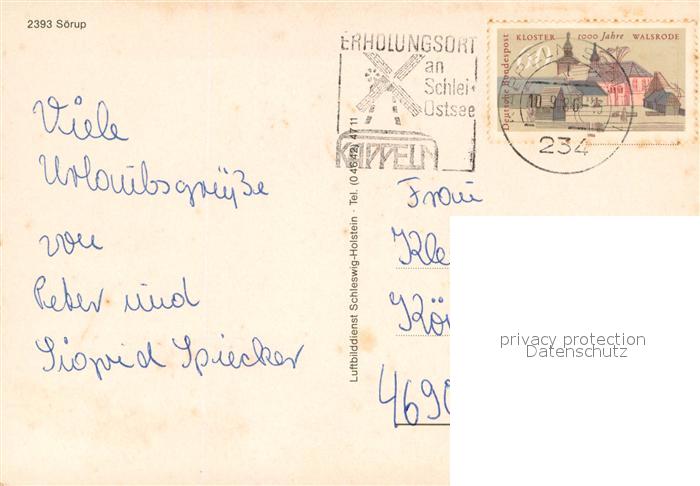 2393 Sörup
ERHOLUNGSORT
an
Schlei +
Ostsee
KAPPELN
KLOSTER 1000 Jahre WALSRODE
Deutsche Bundespost
10.9.86
234
Viele
Urlaubsgrüße
von
Peter und
Sigrid Spiecker
Luftbilddienst Schleswig-Holstein · Tel. (04642) 4711
Frau
Kle
Kön
4690
privacy protection
Datenschutz